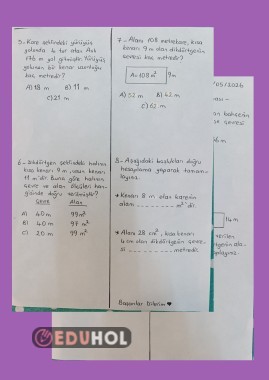 5- Kare şeklindeki yürüyüş
yolunda 4 tur atan Anıl
176 m yol gitmiştir. Yürüyüş
yolunun bir kenar uzunluğu
kaç metredir?
A) 18 m B) 11 m
C) 21 m
6- Dikdörtgen şeklindeki halının
kısa kenarı 9 m, uzun kenarı
11 m'dir. Buna göre halının
çevre ve alan ölçüleri han-
gisinde doğru verilmiştir?
Çevre Alan
A) 40 m 99 m²
B) 40 m 97 m²
C) 20 m 99 m²
7- Alanı 108 metrekare, kısa
kenarı 9 m olan dikdörtgenin
çevresi kaç metredir?
A=108 m² 9m
A) 52 m B) 42 m
C) 62 m
8- Aşağıdaki boşlukları doğru
hesaplama yaparak tamam-
layınız.
* Kenarı 8 m olan karenin
alanı ________ m²'dir.
* Alanı 28 cm², kısa kenarı
4 cm olan dikdörtgenin çevre-
si ________ metredir.
Başarılar Dilerim ♥
/05/2026
an bahçenin
14m
verilen
EDUHOL